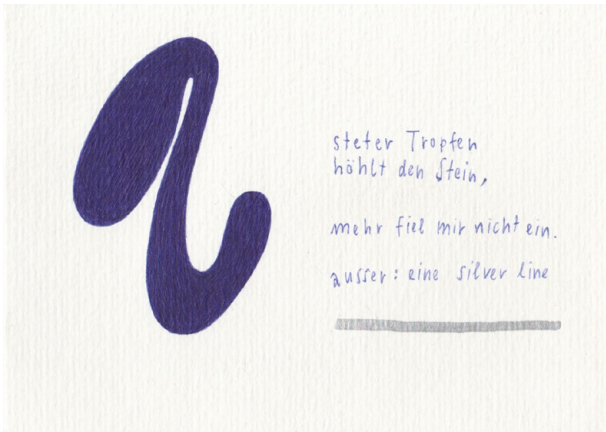 steter Tropfen
höhlt den Stein,
mehr fiel mir nicht ein.
ausser: eine silver line